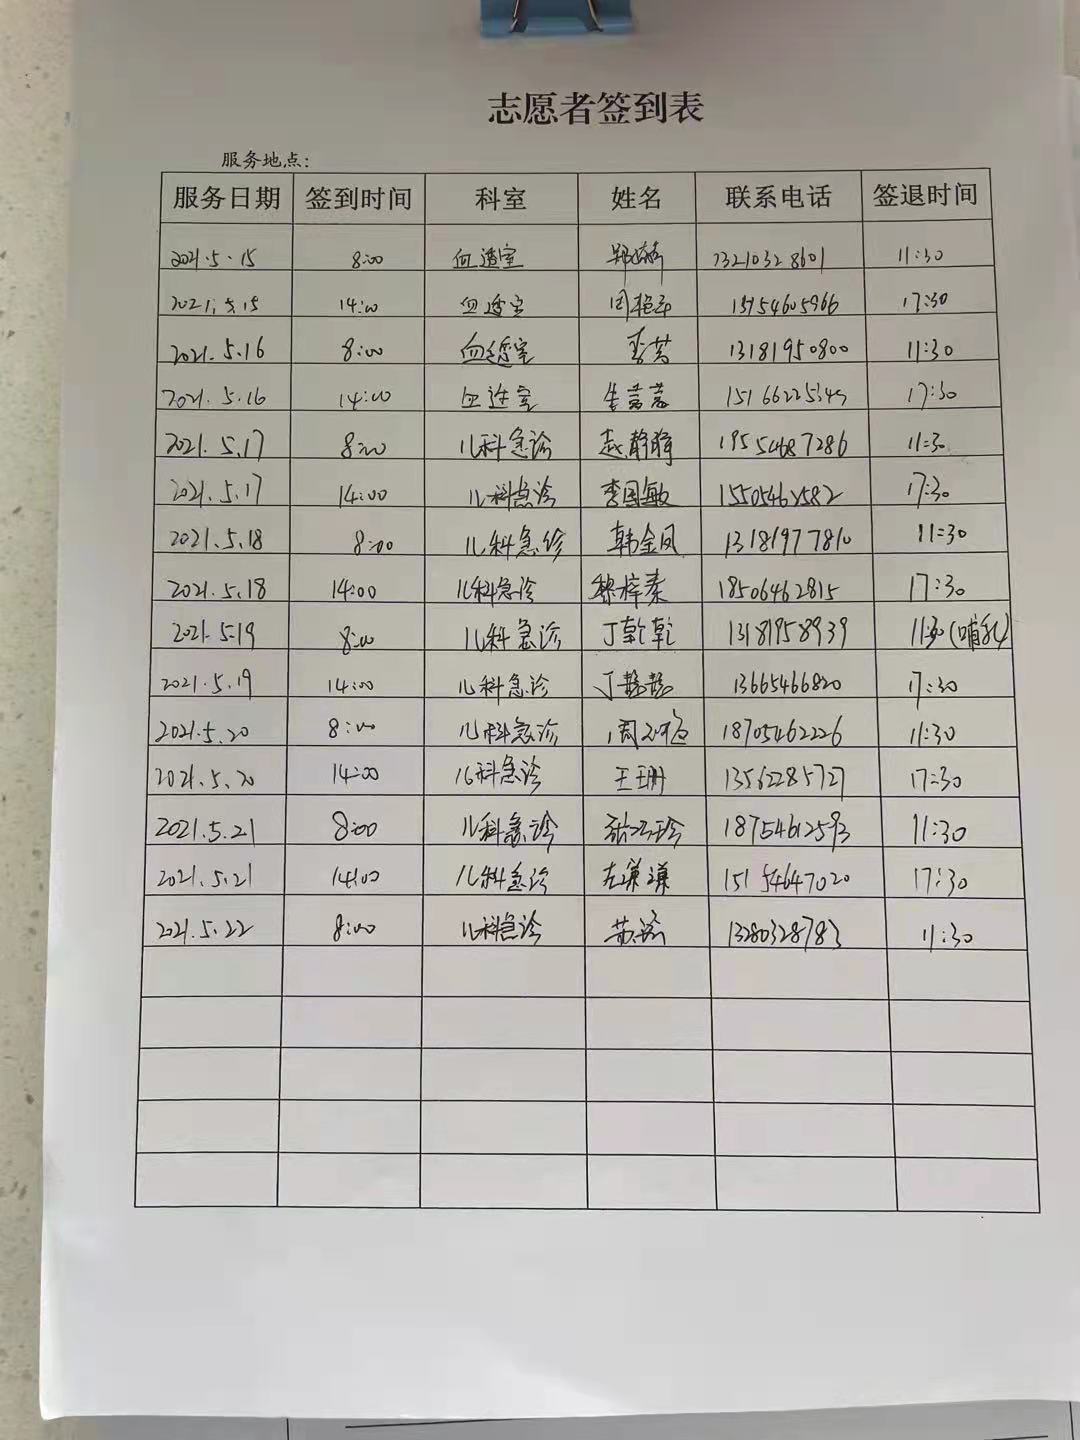 志愿者签到表
服务地点:
服务日期 签到时间 科室 姓名 联系电话 签退时间
2021.5.15 8:00 血透室 13210328601 11:30
2021.5.15 14:00 血透室 15154605966 17:30
2021.5.16 8:00 血透室 李芳 13181950800 11:30
2021.5.16 14:00 血透室 17:30
2021.5.17 8:00 儿科急诊 赵静静 19554687286 11:30
2021.5.17 14:00 儿科急诊 李国敏 17:30
2021.5.18 8:00 儿科急诊 韩金凤 13181977810 11:30
2021.5.18 14:00 儿科急诊 穆梓秦 18506462815 17:30
2021.5.19 8:00 儿科急诊 丁乾乾 13181958939 11:30(哺乳)
2021.5.19 14:00 儿科急诊 13665466820 17:30
2021.5.20 8:00 儿科急诊 18705462226 11:30
2021.5.20 14:00 儿科急诊 王珊 13562285727 17:30
2021.5.21 8:00 儿科急诊 18754612593 11:30
2021.5.21 14:00 儿科急诊 左谦谦 15154647020 17:30
2021.5.22 8:00 儿科急诊 13280328783 11:30